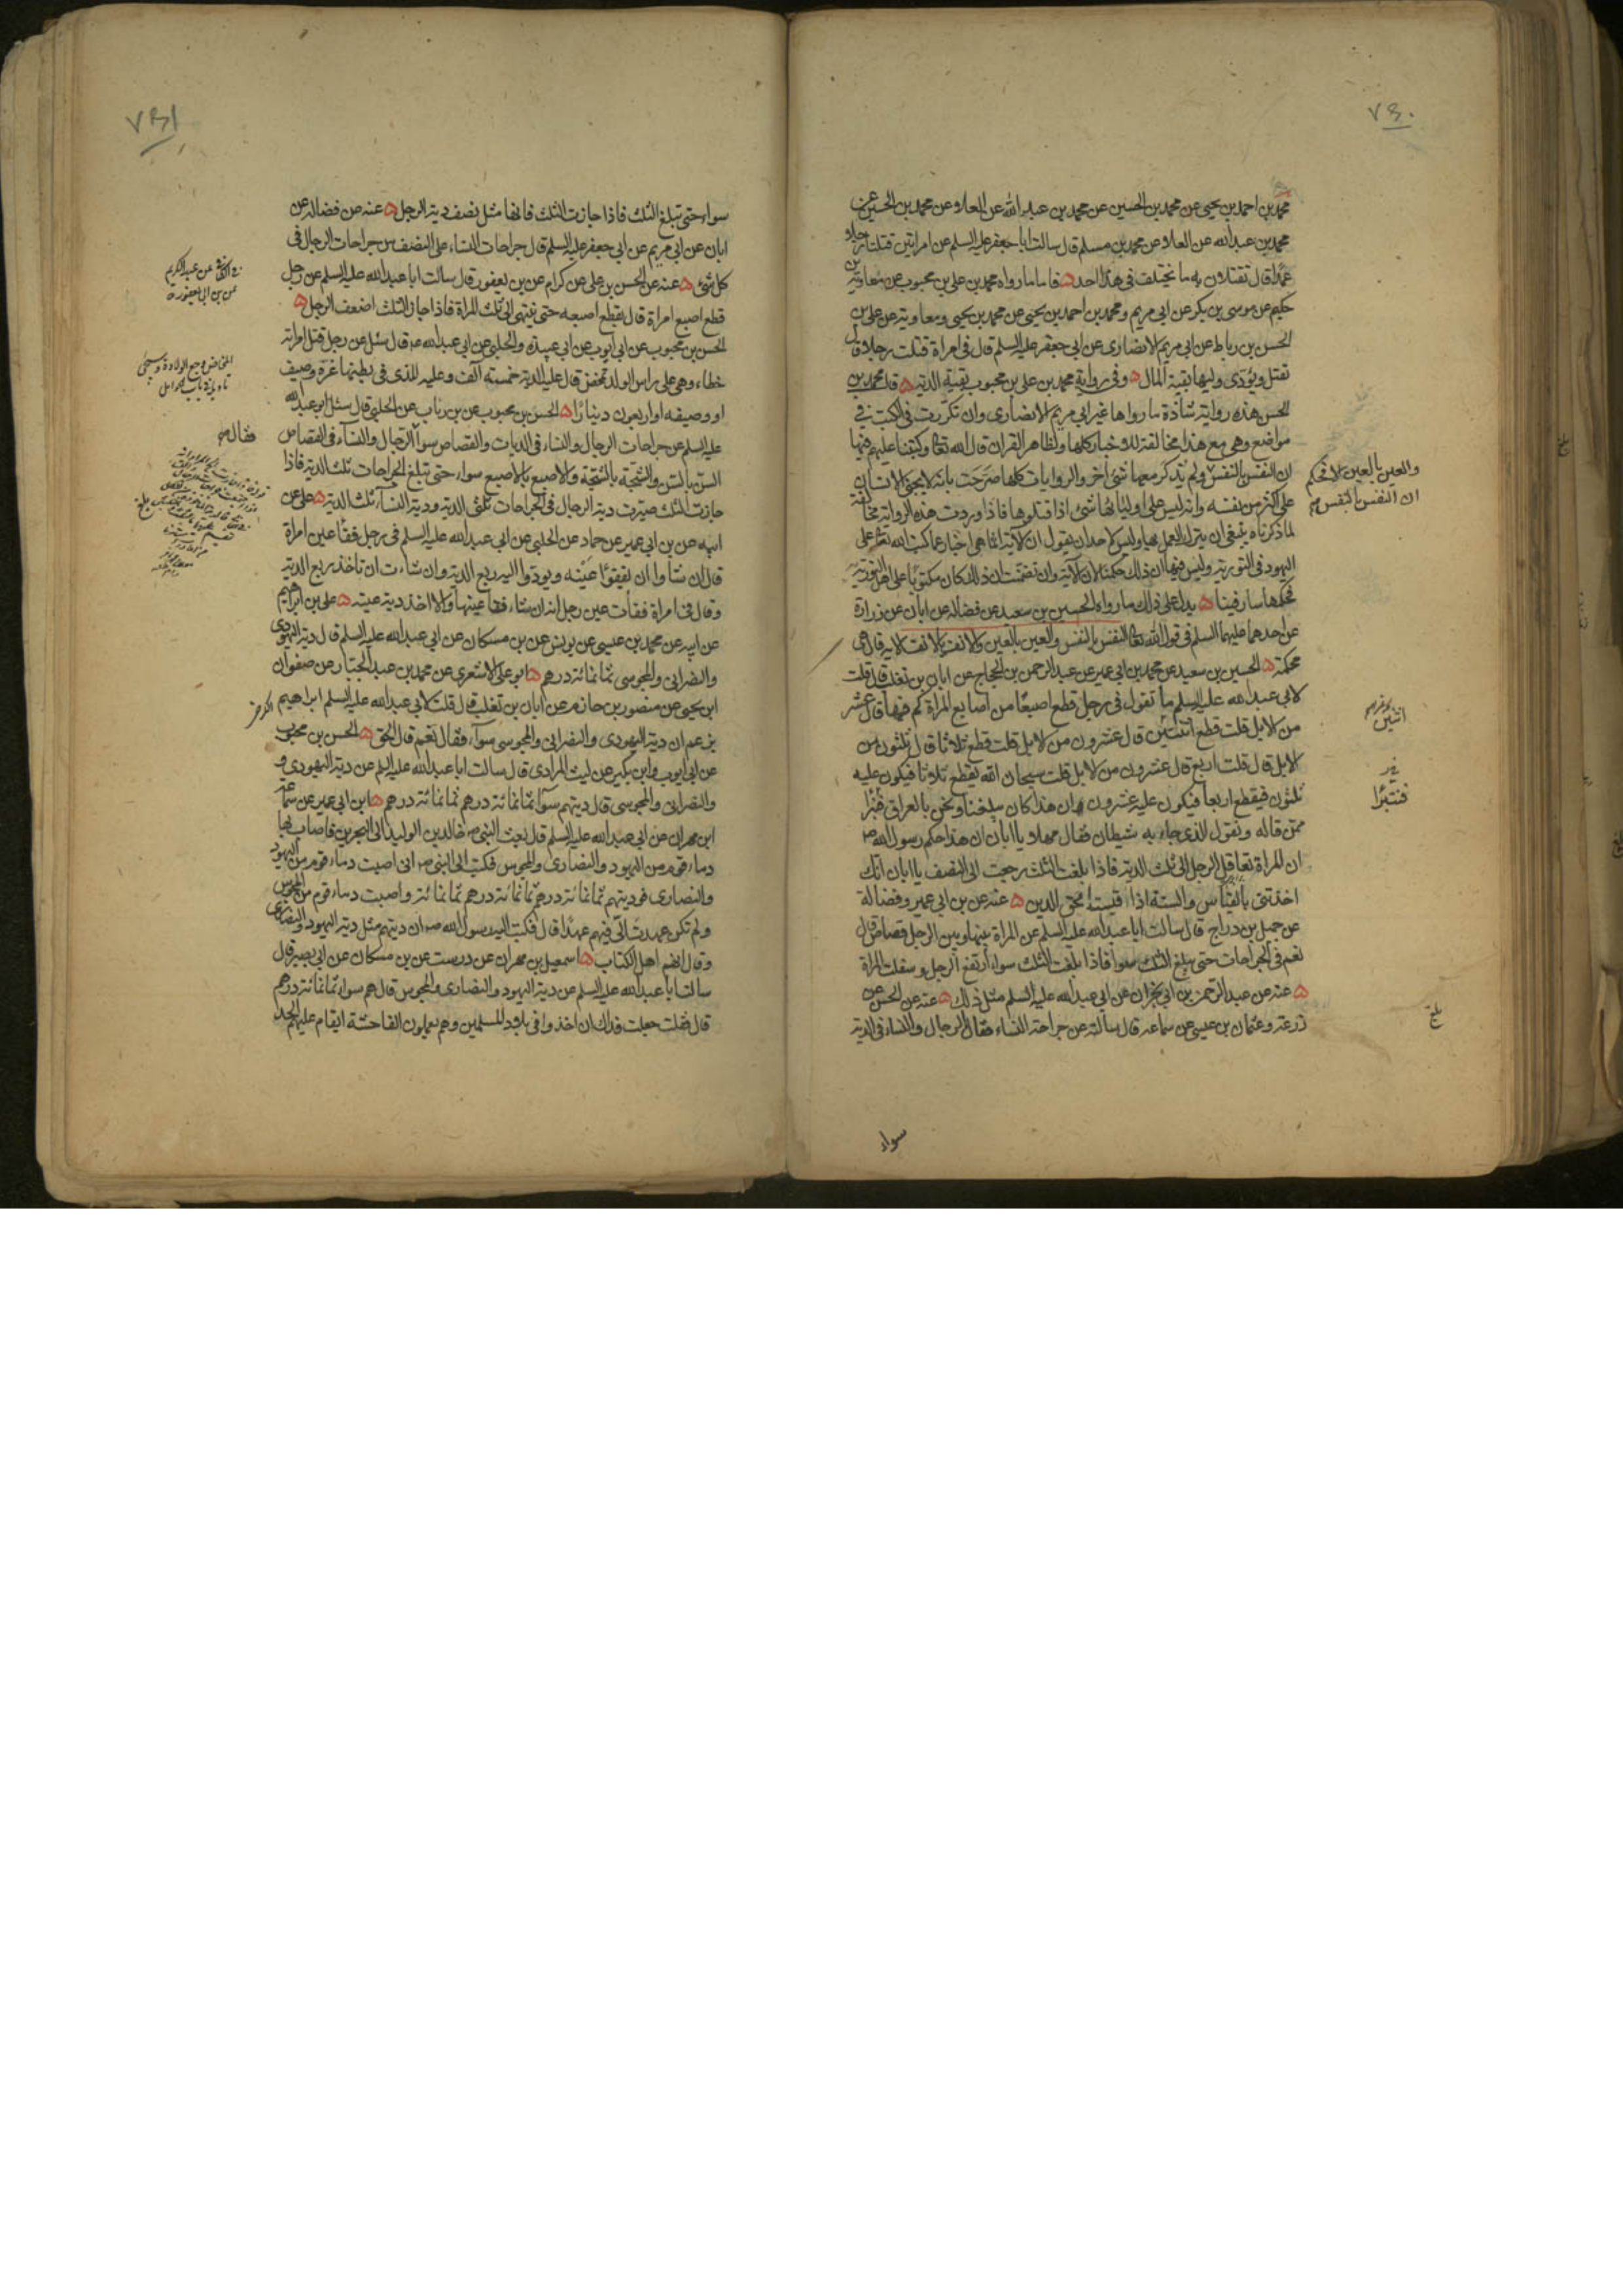 ٧٣٠
محمد بن احمد بن يحيى عن محمد بن الحسين عن محمد بن عبد الله عن العلاء عن محمد بن الحسين عن
محمد بن عبد الله عن العلاء عن محمد بن مسلم قال سالت ابا جعفر عليه السلم عن امراتين قتلتا رجلا
عمدا قال تقتلان به ما يختلف فى هذا احد ه فاما ما رواه محمد بن على بن محبوب عن معاوية بن
حكيم عن موسى بن بكر عن ابى مريم ومحمد بن احمد بن يحيى عن محمد بن يحيى ومعاوية عن على بن
الحسن بن رباط عن ابى مريم الانصارى عن ابى جعفر عليه السلم قال فى امراة قتلت رجلا قال
تقتل ويؤدى وليها بقية المال ه وفى رواية محمد بن على بن محبوب بقية الدية ه قال محمد بن
الحسن هذه رواية شاذة ما رواها غير ابى مريم الانصارى وان تكررت فى الكتب فى
مواضع وهى مع هذا مخالفة للاخبار كلها ولظاهر القران قال الله تعالى وكتبنا عليهم فيها
ان النفس بالنفس ولم يذكر معها شئ اخر والروايات كلها صرحت بانه لا يجنى الانسان
على اكثر من نفسه وانه ليس على اوليائها شئ اذا قتلوها فاذا وردت هذه الرواية مخالفة
لما ذكرناه ينبغى ان يترك العمل بها وليس لاحد ان يقول ان الآية انما هى اخبار عما كتب الله تعالى على
اليهود فى التورية وليس فيها ان ذلك حكمنا لان الآية وان تضمنت ان ذلك كان مكتوبا على اهل التورية
فحكمها سار فينا ه يدل على ذلك ما رواه الحسين بن سعيد عن فضالة عن ابان عن زرارة
عن احدهما عليهما السلم فى قول الله تعالى النفس بالنفس والعين بالعين والانف بالانف الاية قال هى
محكمة ه الحسين بن سعيد عن محمد بن ابى عمير عن عبد الرحمن بن الحجاج عن ابان بن تغلب قال قلت
لابى عبد الله عليه السلم ما تقول فى رجل قطع اصبعا من اصابع المراة كم فيها قال عشر
من الابل قلت قطع اثنتين قال عشرون من الابل قلت قطع ثلاثا قال ثلثون من
الابل قال قلت اربع قال عشرون من الابل قلت سبحان الله يقطع ثلاثا فيكون عليه
ثلثون فيقطع اربعا فيكون عليه عشرون ان هذا كان يبلغنا ونحن بالعراق فنبرا
ممن قاله ونقول الذى جاء به شيطان فقال مهلا يا ابان ان هذا حكم رسول الله ص
ان المراة تعاقل الرجل الى ثلث الدية فاذا بلغت الثلث رجعت الى النصف يا ابان انك
اخذتنى بالقياس والسنة اذا قيست محق الدين ه عنه عن بن ابى عمير وفضالة
عن جميل بن دراج قال سالت ابا عبد الله عليه السلم عن المراة بينها وبين الرجل قصاص قال
نعم فى الجراحات حتى يبلغ الثلث سواء فاذا بلغت الثلث سواء ارتفع الرجل وسفلت المراة
ه عنه عن عبد الرحمن بن ابى نجران عن ابى عبد الله عليه السلم مثل ذلك ه عنه عن الحسن عن
زرعة وعثمان بن عيسى عن سماعه قال سالته عن جراحة النساء فقال الرجال والنساء فى الدية
سواء
والعين بالعين
ان النفس بالنفس
اثنين
بلغ
٧٣١
سواء حتى تبلغ الثلث فاذا جازت الثلث فانها مثل نصف دية الرجل ه عنه عن فضالة عن
ابان عن ابى مريم عن ابى جعفر عليه السلم قال جراحات النساء على النصف من جراحات الرجال فى
كل شئ ه عنه عن الحسن بن على عن كرام عن بن يعفور قال سالت ابا عبد الله عليه السلم عن رجل
قطع اصبع امراة قال يقطع اصبعه حتى ينتهى الى ثلث المراة فاذا جاز الثلث اضعف الرجل ه
الحسن بن محبوب عن ابى ايوب عن ابى عبيدة والحلبى عن ابى عبد الله ع قال سئل عن رجل قتل امراة
خطاء وهى على راس الولد تمخض قال عليه الدية خمسة آلف وعليه للذى فى بطنها غرة وصيف
او وصيفه او اربعون دينارا ه الحسن بن محبوب عن بن رئاب عن الحلبى قال سئل ابو عبد الله
عليه السلم عن جراحات الرجال والنساء فى الديات والقصاص سواء الرجال والنساء فى القصاص
السن بالسن والشجة بالشجة والاصبع بالاصبع سواء حتى تبلغ الجراحات ثلث الدية فاذا
جازت الثلث صيرت دية الرجال فى الجراحات ثلثى الدية ودية النساء ثلث الدية ه على عن
ابيه عن بن ابى عمير عن حماد عن الحلبى عن ابى عبد الله عليه السلم فى رجل فقأ عين امراة
قال ان شاوا ان يفقؤا عينه ويودوا اليه ربع الدية وان شاءت ان تاخذ ربع الدية
وقال فى امراة فقأت عين رجل انه ان شاء فقأ عينها والا اخذ دية عينه ه على بن ابراهيم
عن ابيه عن محمد بن عيسى عن يونس عن بن مسكان عن ابى عبد الله عليه السلم قال دية اليهودى
والنصرانى والمجوسى ثمانمائة درهم ه ابو على الاشعرى عن محمد بن عبد الجبار عن صفوان
ابن يحيى عن منصور بن حازم عن ابان بن تغلب قال قلت لابى عبد الله عليه السلم ابراهيم
يزعم ان دية اليهودى والنصرانى والمجوسى سواء فقال نعم قال الحق ه الحسن بن محبوب
عن ابى ايوب وابن بكير عن ليث المرادى قال سالت ابا عبد الله عليه السلم عن دية اليهودى و
والنصرانى والمجوسى قال ديتهم سواء ثمانمائة درهم ثمانمائة درهم ه ابن ابى عمير عن سماعة
ابن مهران عن ابى عبد الله عليه السلم قال بعث النبى ص خالد بن الوليد الى البحرين فاصاب بها
دماء قوم من اليهود والنصارى والمجوس فكتب الى النبى ص انى اصبت دماء قوم من اليهود
والنصارى فوديتهم ثمانمائة درهم ثمانمائة درهم ثمانمائة واصبت دماء قوم من المجوس
ولم تكن عهدت الى فيهم عهدا قال فكتب اليه رسول الله ص ان ديتهم مثل دية اليهود والنصارى
وقال انهم اهل الكتاب ه اسمعيل بن مهران عن درست عن بن مسكان عن ابى بصير قال
سالت ابا عبد الله عليه السلم عن دية اليهود والنصارى والمجوس قال هم سواء ثمانمائة درهم
قال قلت جعلت فداك ان اخذوا فى بلاد المسلمين وهم يعملون الفاحشة ايقام عليهم الحد
عن عبد الكريم
عن بن ابى يعفور
المخاض وجع الولادة
فقال